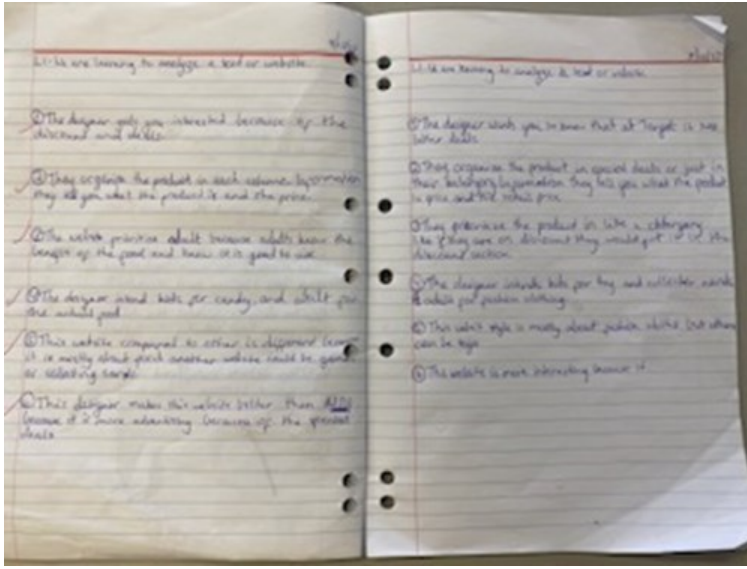 LI-We are learning to analyse a text or website.
① The designer gets you interested because of the
discount and deals.
② They organise the product in each column. Information
they tell you what the product is and the price.
③ The website prioritise adult because adults know the
of the food and know it is good to use.
④ The designer intend kids for candy, and adult for
the actual food
⑤ This website compared to other is different because
it is mostly about food another website could be games
or collecting cards.
⑥ This designer makes this website better than ALDI
because it is more advertising because of the special
deals
LI-We are learning to analyse a text or website.
① The designer wants you to know that at Target is has
better deals
② They organise the product in special deals or just in
their Information they tell you what the product
is price and the price.
③ They prioritise the product in like a
like if they are on discount they would put it in the
discount section.
④ The designer intends kids for toy and
& adults for fashion clothing.
⑤ This style is mostly about fashion but others
can be toys
⑥ This website is more interesting because it